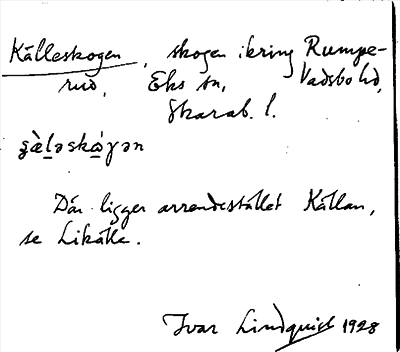 Källeskogen, skogen ikring Rumpe-
rud, Eks sn, Vadsbo hd,
Skarab. l.
Där ligger arrendestället Källan,
se Likälle.
Ivar Lindquist 1928